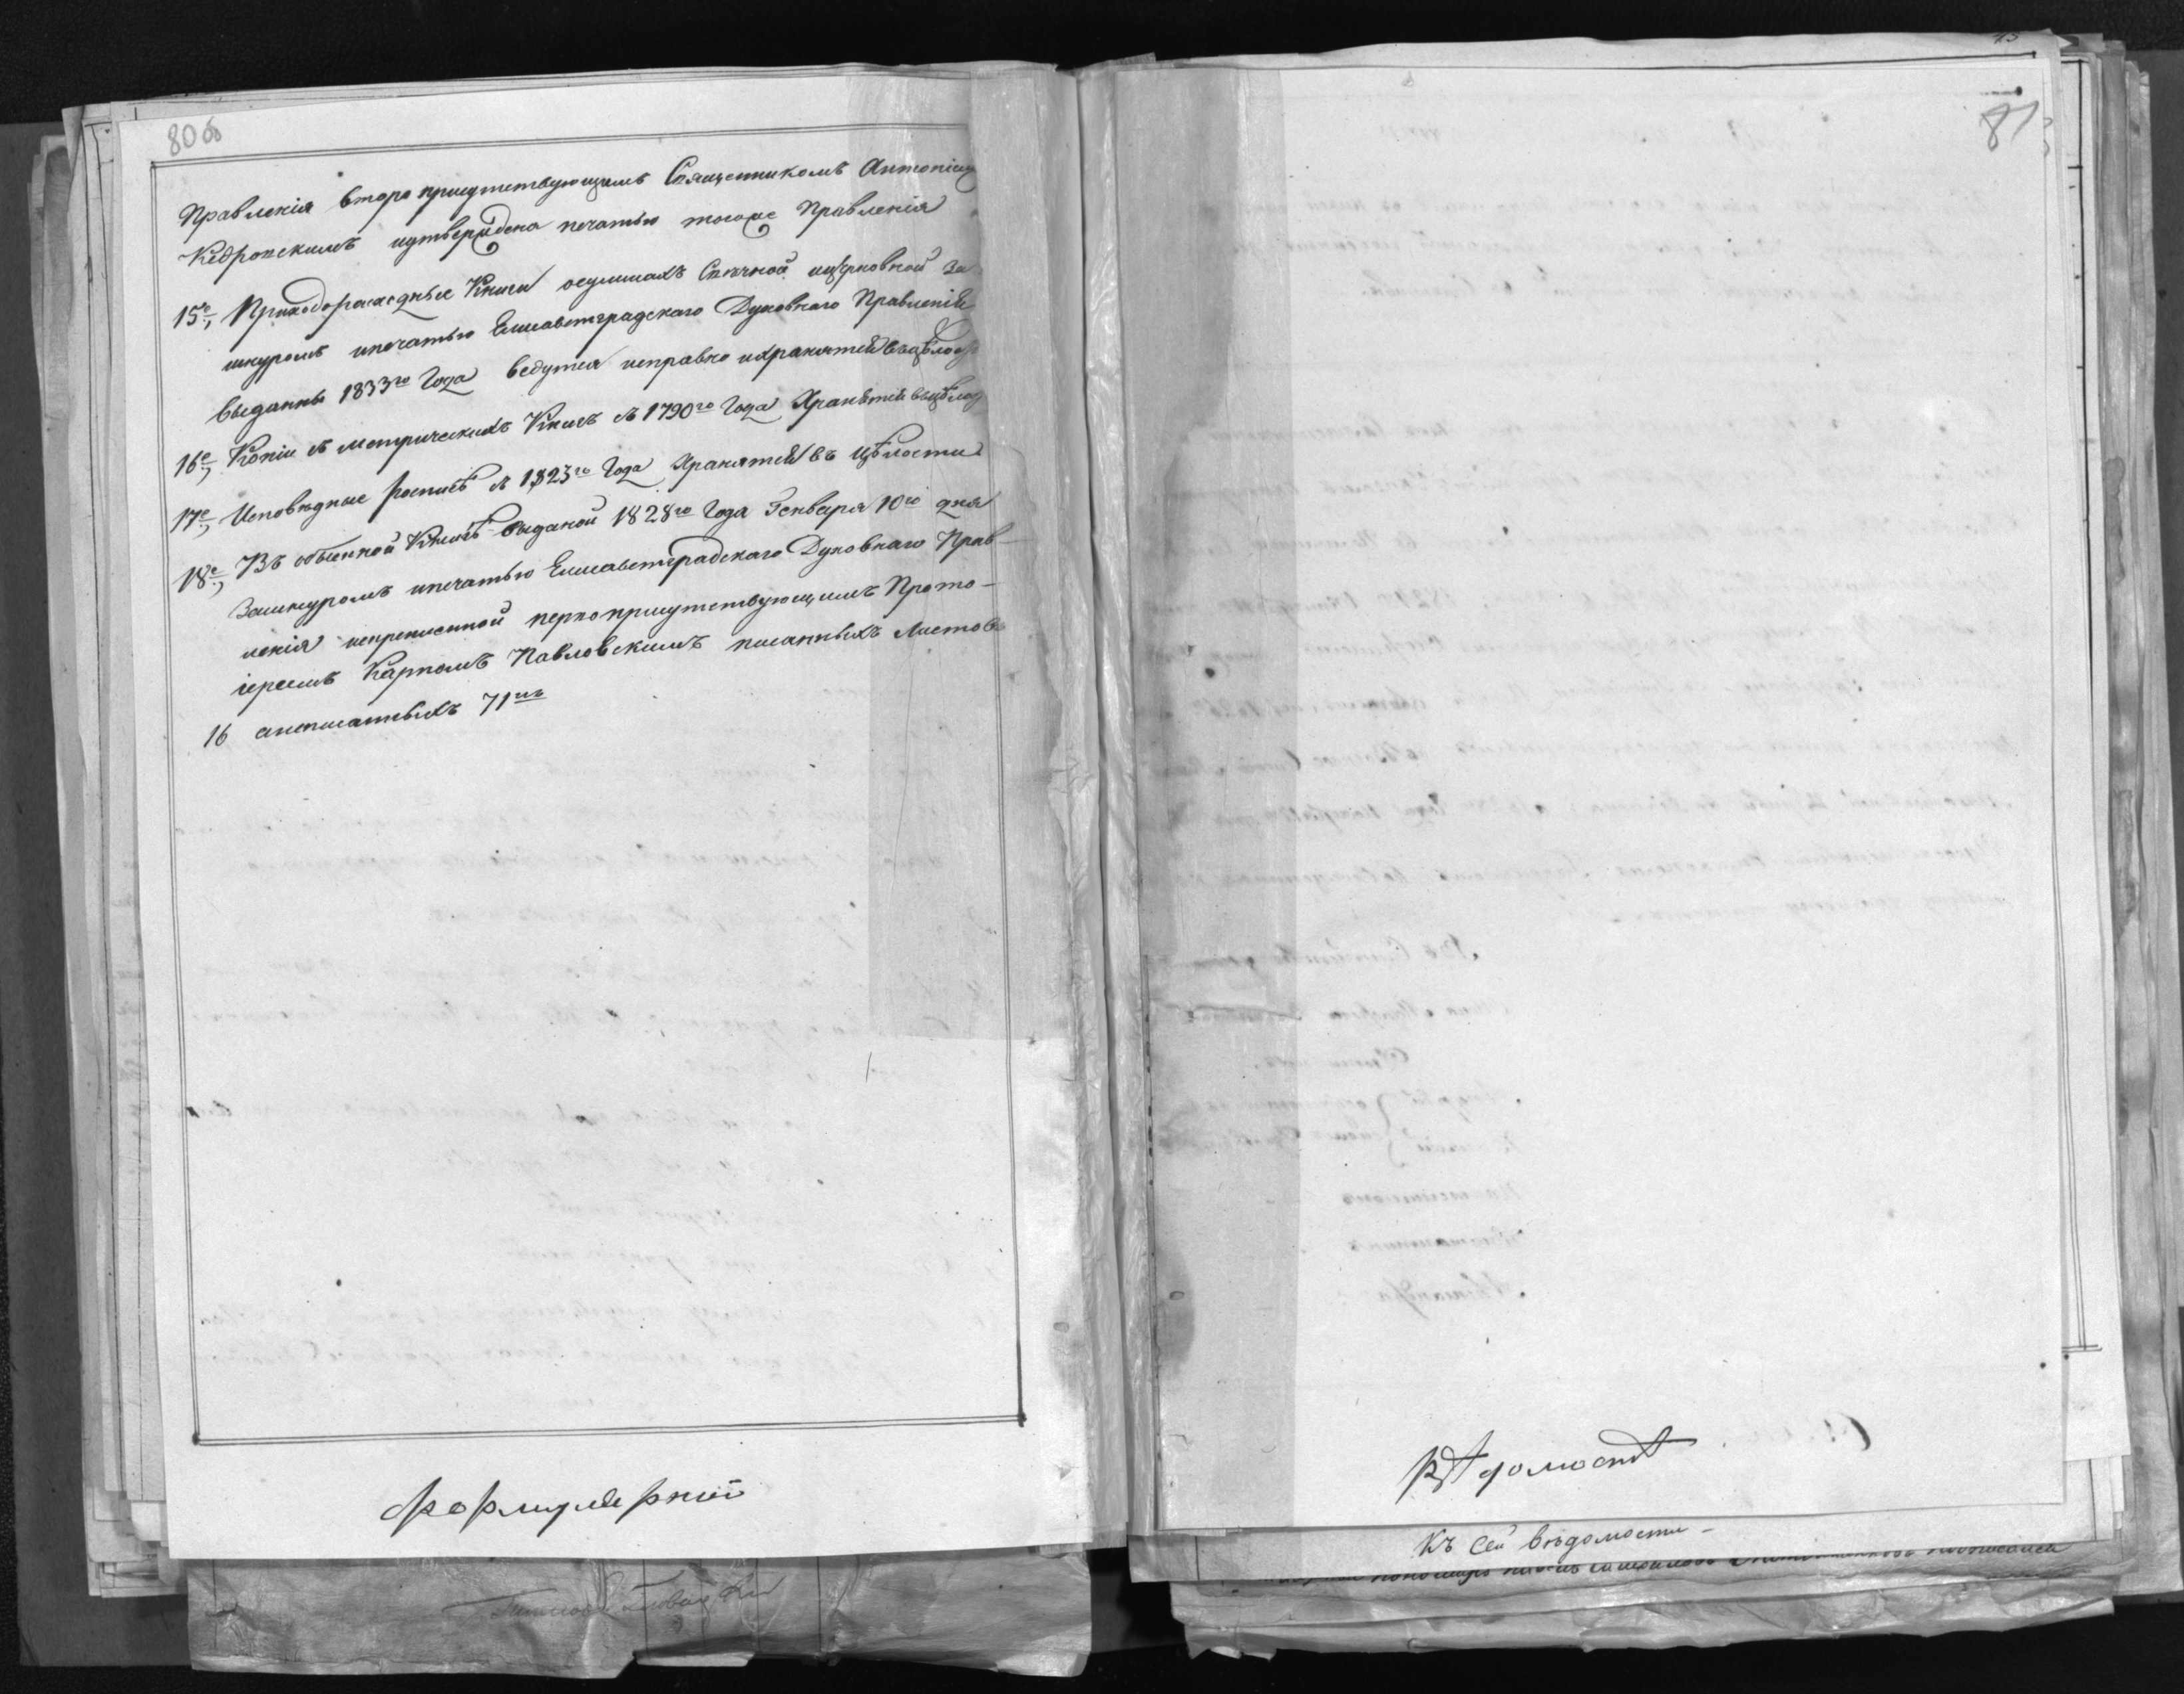 80об
Правленія второприсутствующимъ Священникомъ Антоніем
Кедровскимъ иутверждена печатью тогоже Правленія
15е, Приходорасходные Книги осуммахъ Свѣчной ицерковной За
шнуромъ ипечатью Елисаветградскаго Духовнаго Правленія
выданны 1833го Года ведутся исправно ихранятся вцѣлос
16е, Копіи съ метрическихъ Книгъ съ 1790го Года Хранятся вцѣлос
17е, Исповѣдные росписѣ съ 1823го Года Хранятся въ Цѣлости
18е, Въ обыскной Книгѣ выданой 1828го Года Генваря 10го дня
Зашнуромъ ипечатью Елисаветградскаго Духовнаго Прав-
ленія искрепленной первоприсутствующимъ Прото-
іереемъ Карпомъ Павловскимъ писанныхъ Листовъ
16 анеписанныхъ 71нъ
Формулярній
81
Вѣдомость
Къ Сей вѣдомости